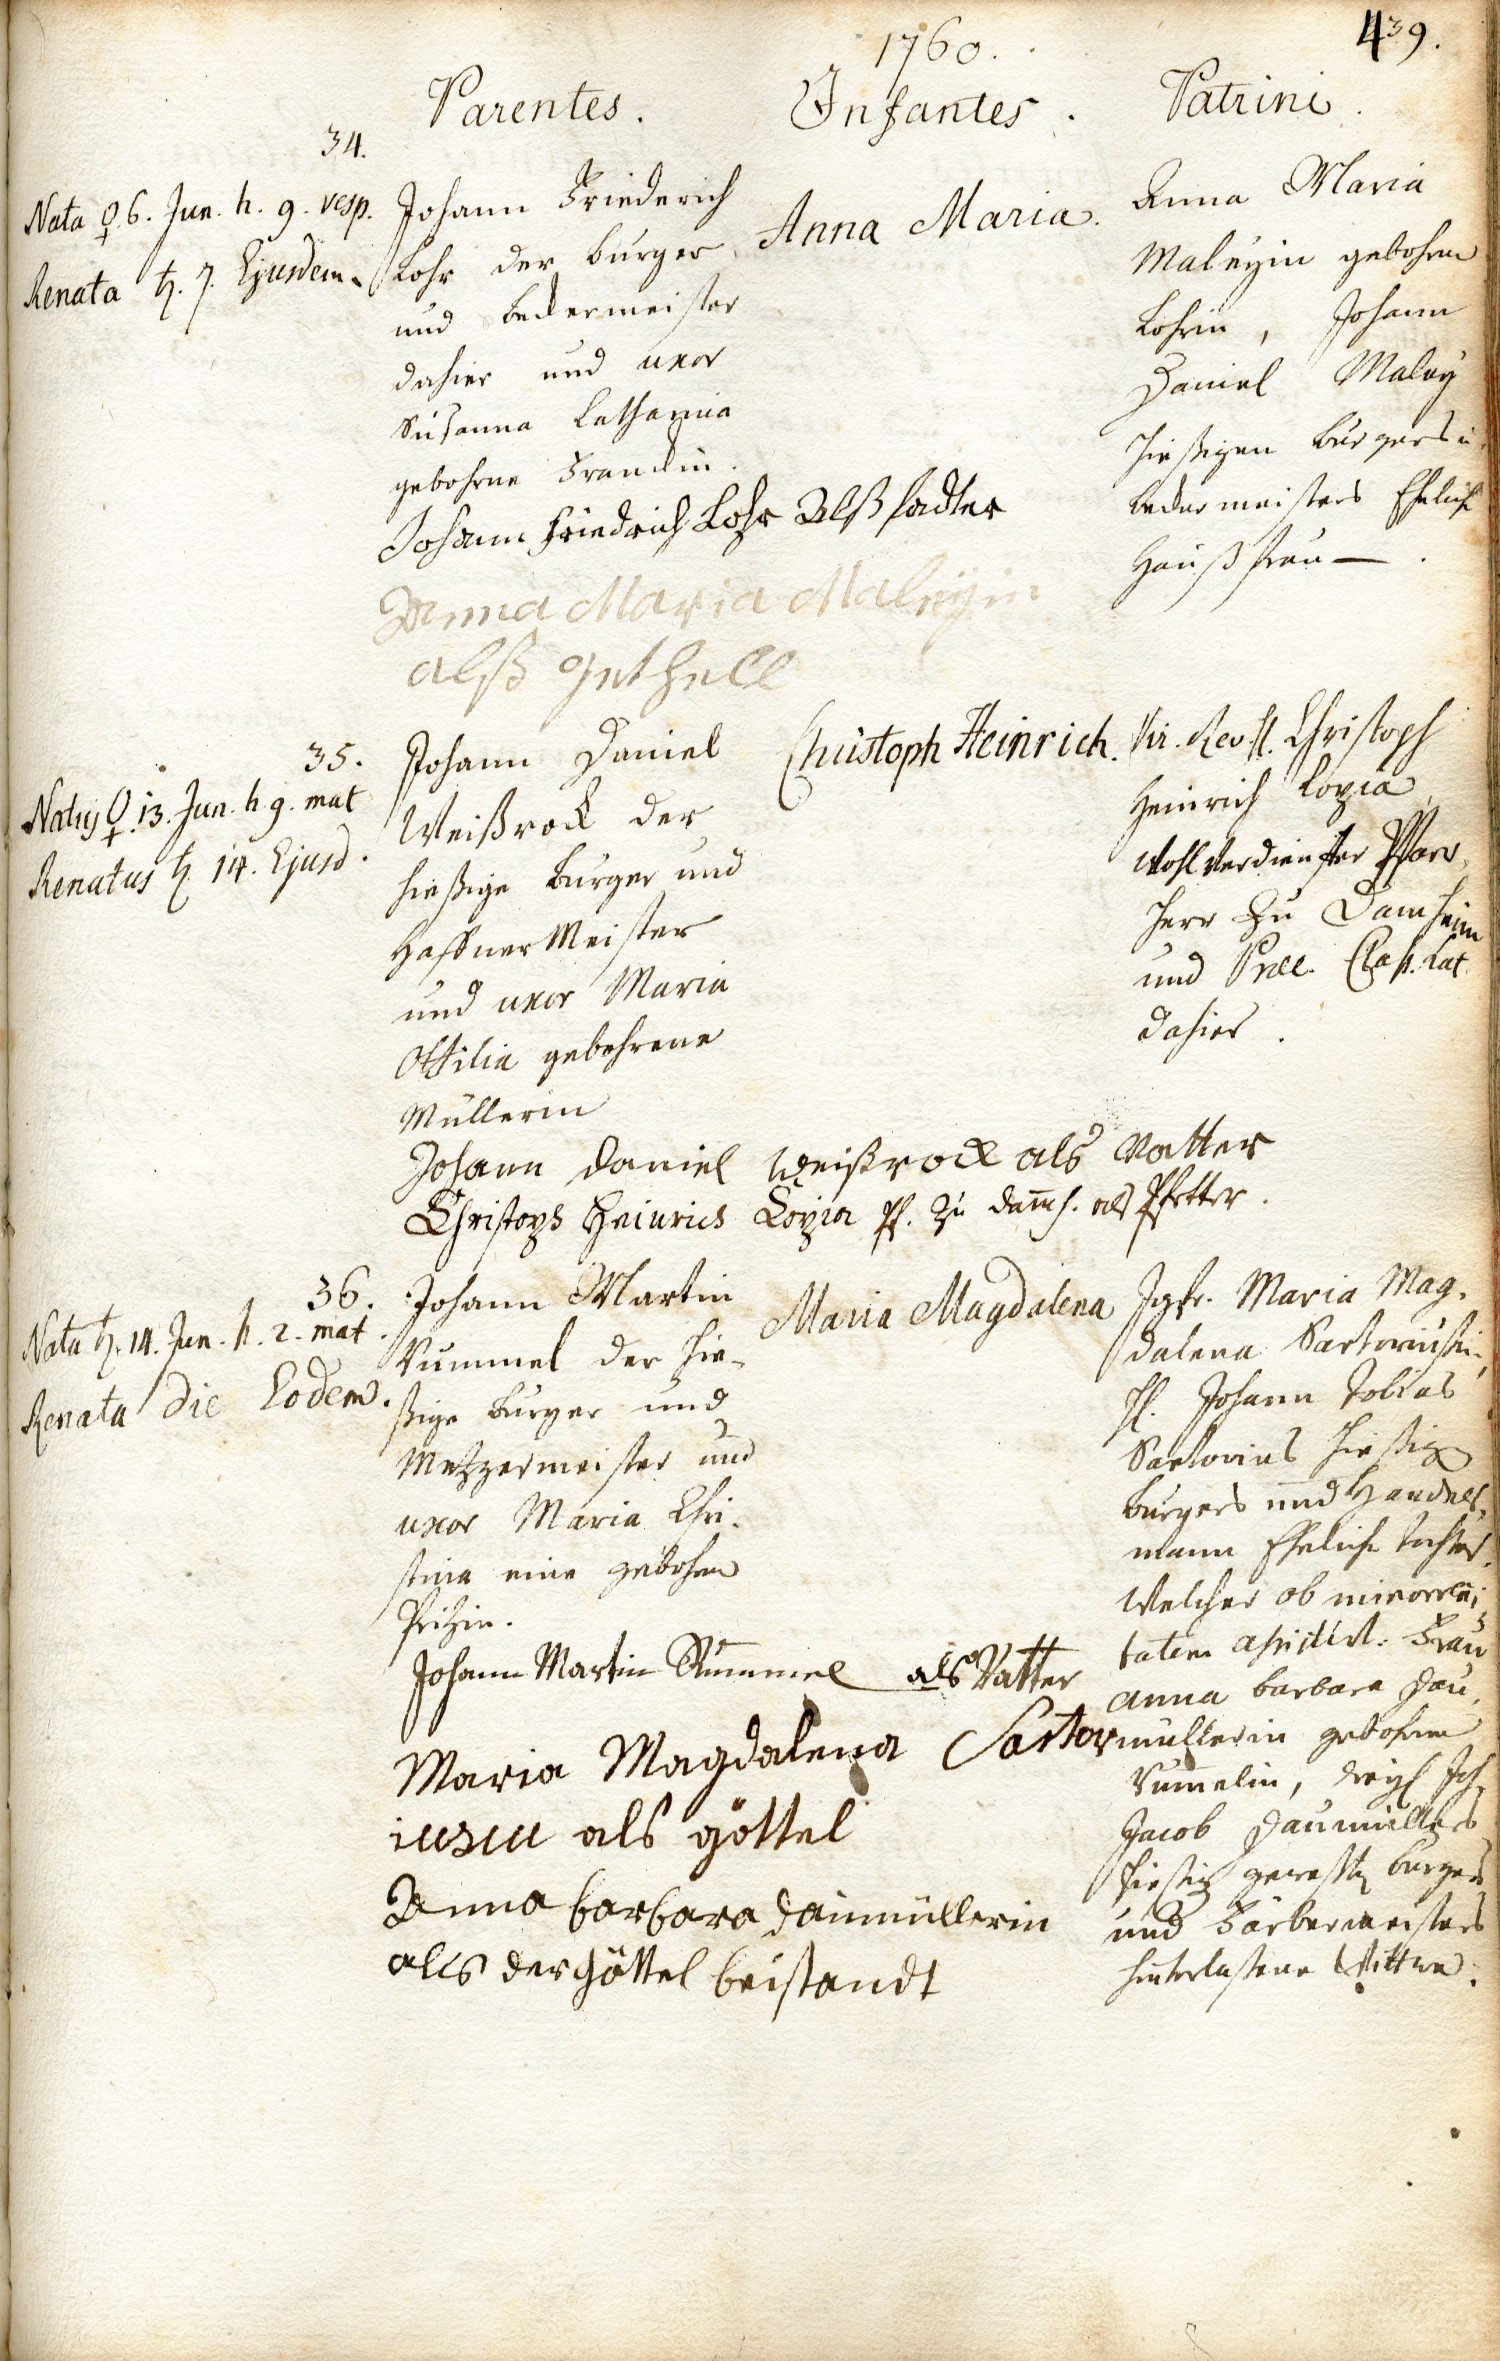 439.
1760.
Parentes. Infantes. Patrini.
34.
Nata ♀ 6. Jun. h. 9. vesp.
Renata ♄. 7. Ejusdem.
Johann Friederich
Lohr der burger
und Ledermeister
dahier und uxor
Susanna Catharina
gebohrne
Johann Friedrich Lohr Alß
Anna Maria Maleyin
alß
Anna Maria.
Anna Maria
Maleyin gebohrne
Lohrin, Johann
Daniel Maley
hießigen burgers u.
Ledermeisters Ehelich
Haußfrau — .
35.
Natus ♀. 13. Jun. h 9. mat
Renatus ♄ 14. Ejusd.
Johann Daniel
Weißrock der
hießige burger und
Haffner Meister
und uxor Maria
Ottilia gebohrene
Müllerin
Johann Daniel weißrock als Vatter
Christoph Heinrich Pf. zu Dam̄h. als Pfetter.
Christoph Heinrich.
Christoph
Heinrich
wohl verdienster Pfarr
Herr zu Damheim
und Præc. Lat
dahier.
36.
Nata ♄. 14. Jun. h. 2. mat.
Renata die Eodem.
Johann Martin
Rummel der hie-
ßige burger und
Metzgermeister und
uxor Maria Chri-
stina eine gebohrne
Johann Martin Rummel als Vatter
Maria Magdalena Sartor
iusin als göttel
Anna barbara Daumüllerin
alls der göttel beistandt
Maria Magdalena
Jgfr. Maria Mag-
dalena Sartoriusin,
H. Johann Tobias
Sartorius hießig
burgers und Handels-
mann Eheliche tochter,
Welcher ob minoren-
tatem assistirt: Frau
anna barbara Dau-
müllerin gebohrne
Rum̄elin, Joh.
Jacob Daumüllers
hießig burgers
und Färbermeisters
hinterlaßene Wittwe.